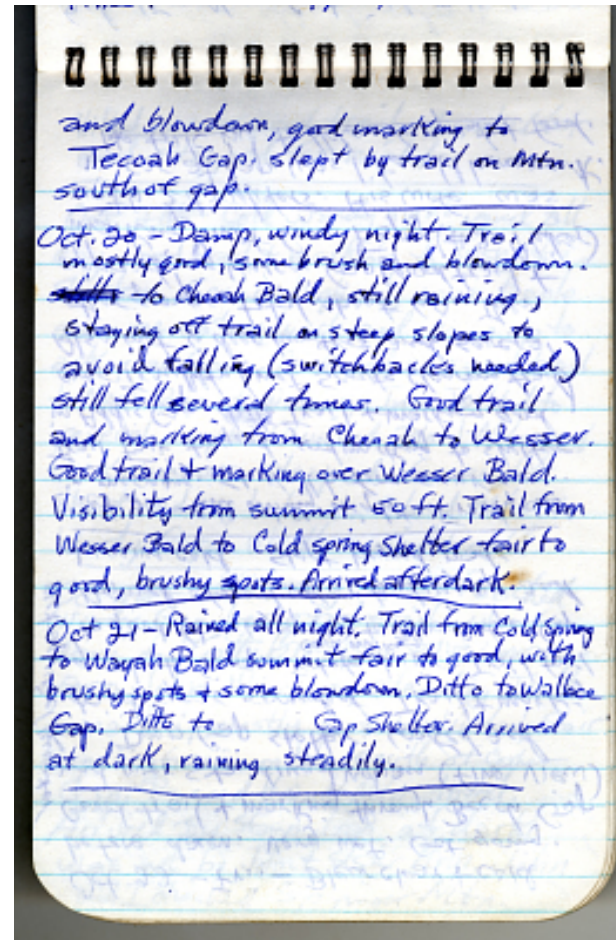 and blowdown, good marking to
Tecoah Gap. slept by trail on Mtn.
south of gap.
Oct. 20 - Damp, windy night. Trail
mostly good, some brush and blowdown.
to Cheoah Bald, still raining,
staying off trail on steep slopes to
avoid falling (switchbacks needed)
still fell several times. Good trail
and marking from Cheoah to Wesser.
Good trail + marking over Wesser Bald.
Visibility from summit 50 ft. Trail from
Wesser Bald to Cold spring Shelter fair to
good, brushy spots. Arrived after dark.
Oct 21 - Rained all night. Trail from Cold Spring
to Wayah Bald summit fair to good, with
brushy spots + some blowdown. Ditto to Wallace
Gap. Ditto to Gap Shelter. Arrived
at dark, raining steadily.